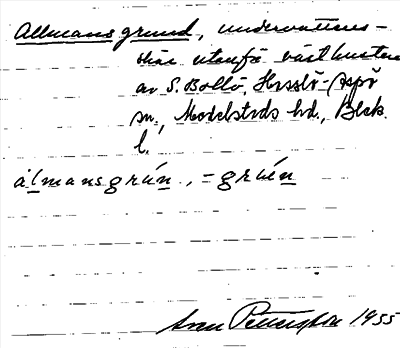 Allmansgrund, undervattens-
skär utanför västkusten
av S. Bollö, Hasslö-Aspö
sn., Medelsteds hd., Blek.
l.
a`lmansgrún., = gruén
Sven Pettersson 1955